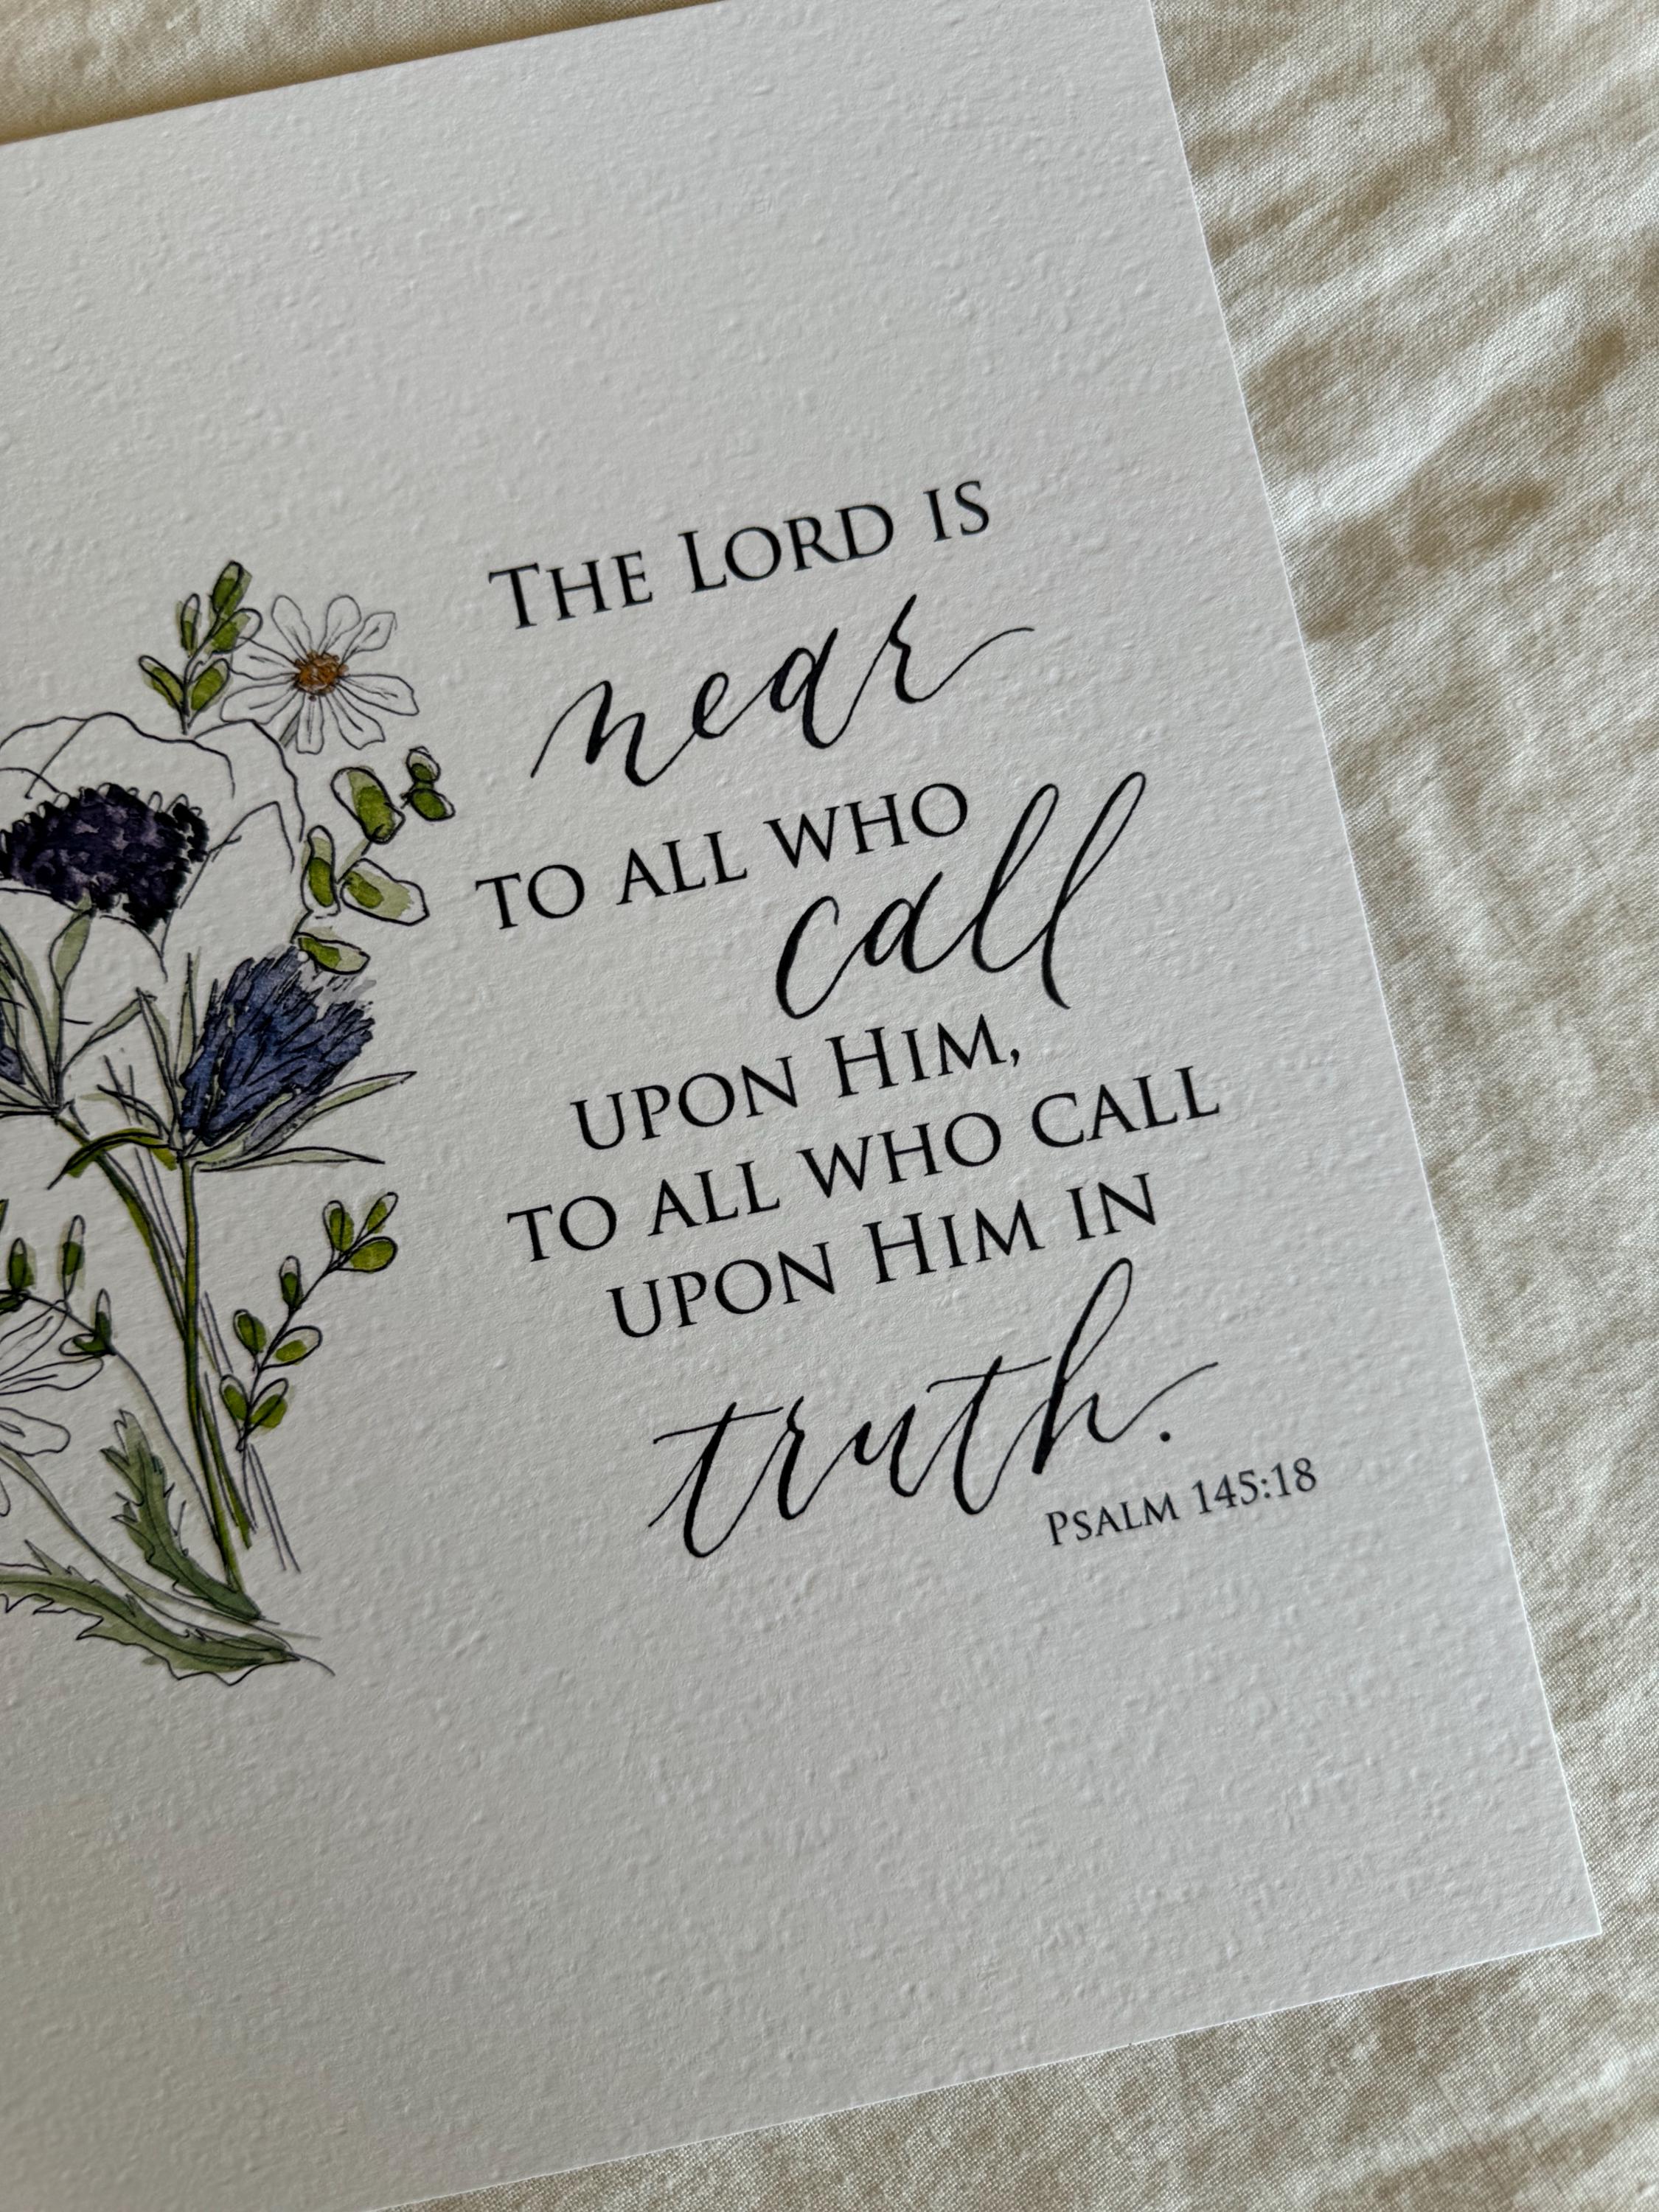 The Lord is
near
to all who
call
upon Him,
to all who call
upon Him in
truth.
Psalm 145:18